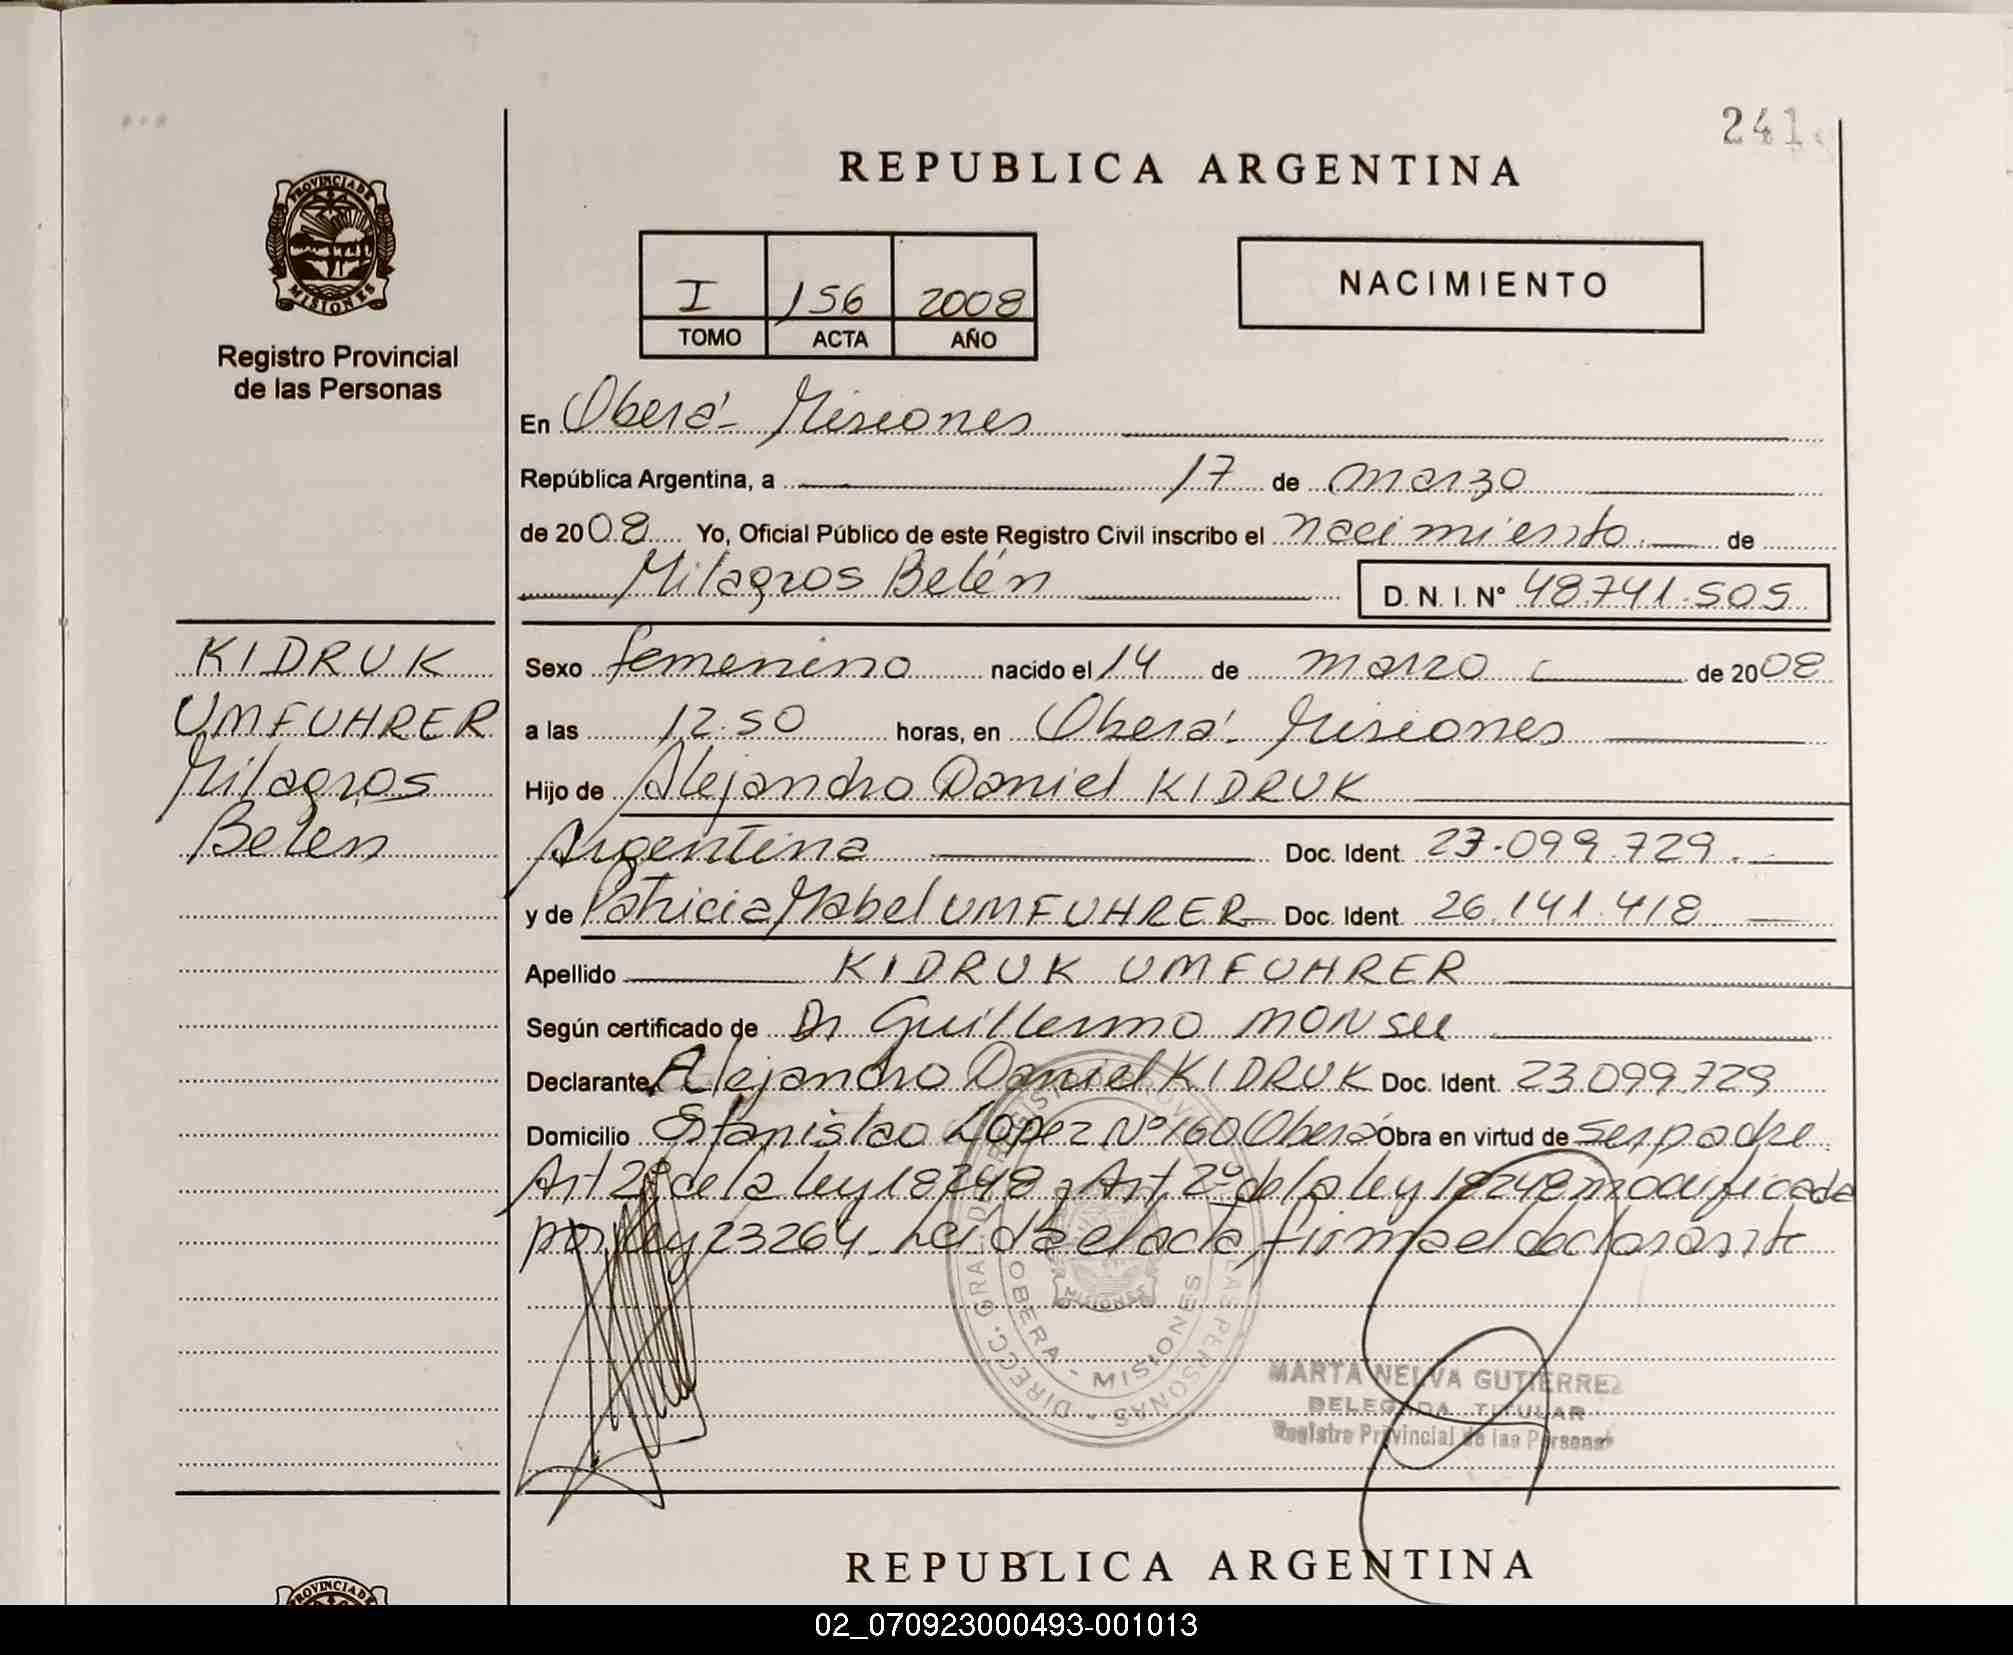 241
PROVINCIA DE
MISIONES
Registro Provincial
de las Personas
REPUBLICA ARGENTINA
I 156 2008
TOMO ACTA AÑO
NACIMIENTO
En Oberá - Misiones
República Argentina, a 17 de marzo
de 2008 Yo, Oficial Público de este Registro Civil inscribo el nacimiento de
Milagros Belén D.N.I. Nº 48.741.505
KIDRUK
UMFUHRER
Milagros
Belén
Sexo femenino nacido el 14 de marzo de 2008
a las 12.50 horas, en Oberá - Misiones
Hijo de Alejandro Daniel KIDRUK
Argentina Doc. Ident. 23.099.729.
y de Patricia Mabel UMFUHRER Doc. Ident. 26.141.418
Apellido KIDRUK UMFUHRER
Según certificado de Dr Guillermo
Declarante Alejandro Daniel KIDRUK Doc. Ident. 23.099.729
Domicilio Estanislao López Nº 160 Oberá Obra en virtud de ser padre
Art 2º de la ley 18248 y Art. 2º de la ley 18248 modificada
por ley 23264. Leída el acta firma el declarante
OBERA - MISIONES
MISIONES
MARTA NELVA GUTIERREZ
DELEGADA TITULAR
Registro Provincial de las Personas
REPUBLICA ARGENTINA
PROVINCIA DE
02_070923000493-001013